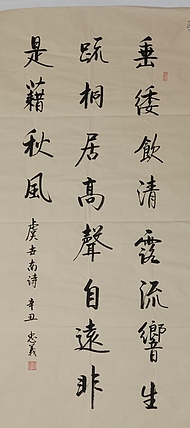 垂緌飲清露流響生
疏桐居高聲自遠非
是藉秋風
虞世南诗 辛丑 忠義